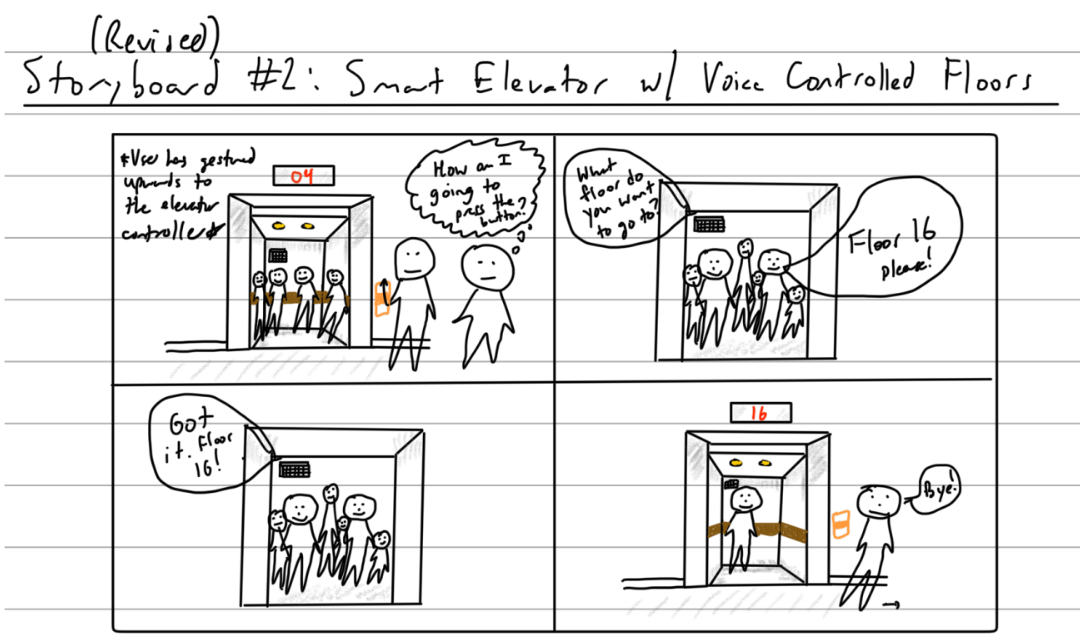 (Revised)
Storyboard #2: Smart Elevator w/ Voice Controlled Floors
*User has gestured
upwards to
the elevator
controller*
04
How am I
going to
press the
button?
What
floor do
you want
to go to?
Floor 16
please!
Got
it. Floor
16!
16
Bye!